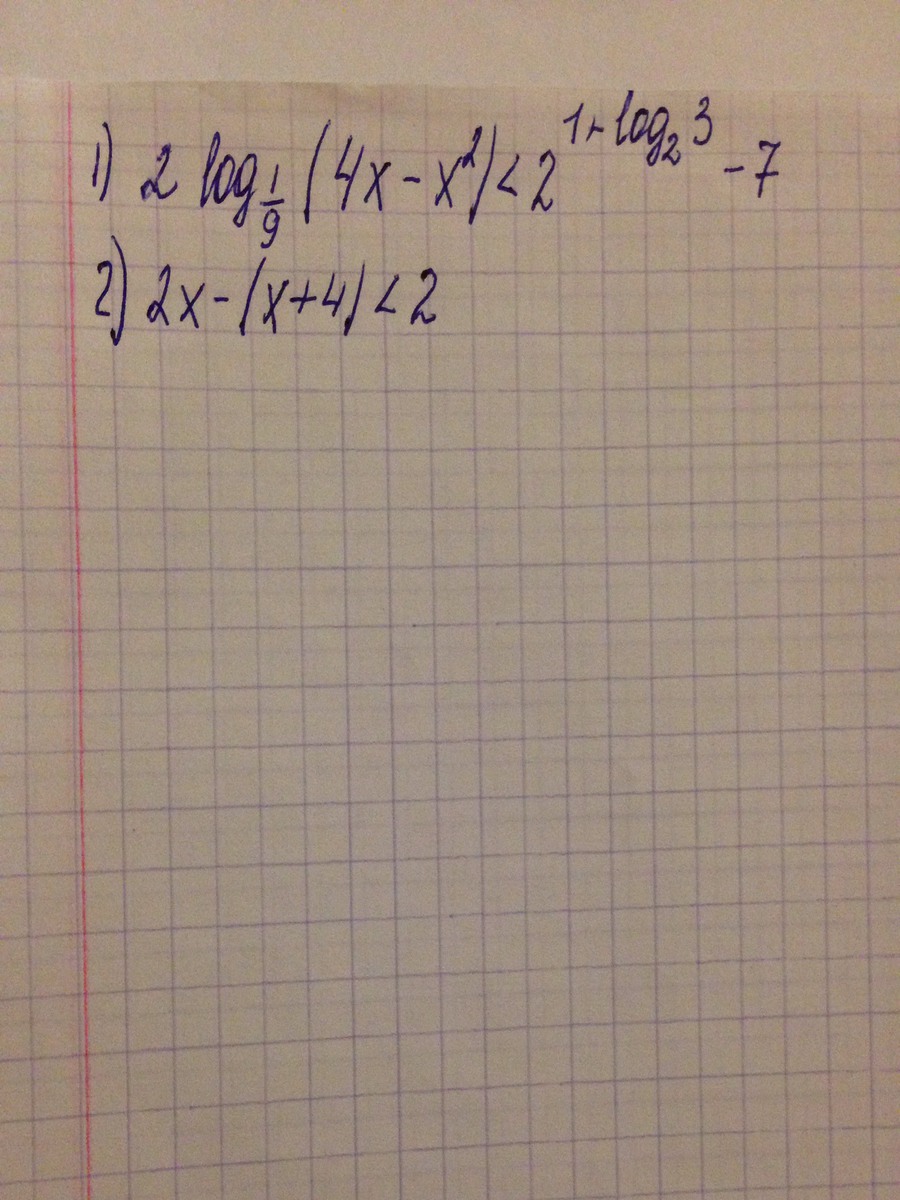 1) 2 log_{1/9} (4x - x²) < 2^{1+log_2 3} - 7
2) 2x - (x+4) < 2